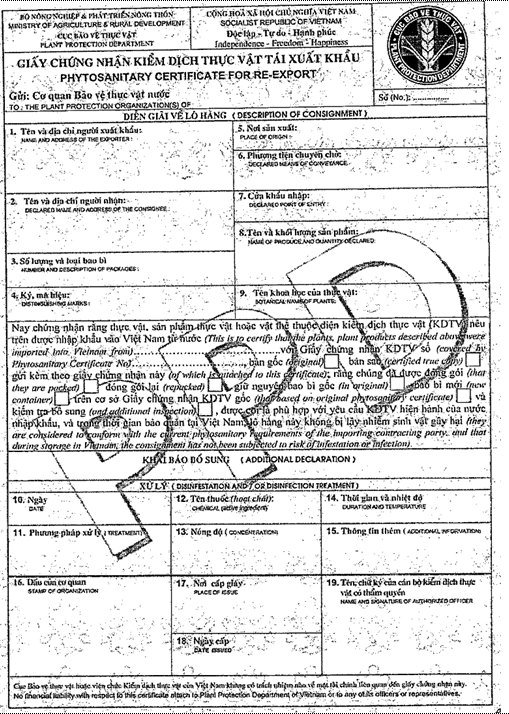 BỘ NÔNG NGHIỆP & PHÁT TRIỂN NÔNG THÔN
MINISTRY OF AGRICULTURE & RURAL DEVELOPMENT
CỤC BẢO VỆ THỰC VẬT
PLANT PROTECTION DEPARTMENT
CỘNG HOÀ XÃ HỘI CHỦ NGHĨA VIỆT NAM
SOCIALIST REPUBLIC OF VIETNAM
Độc lập - Tự do - Hạnh phúc
Independence - Freedom - Happiness
CỤC BẢO VỆ THỰC VẬT
PLANT PROTECTION DEPARTMENT
GIẤY CHỨNG NHẬN KIỂM DỊCH THỰC VẬT TÁI XUẤT KHẨU
PHYTOSANITARY CERTIFICATE FOR RE-EXPORT
Gửi: Cơ quan Bảo vệ thực vật nước
TO: THE PLANT PROTECTION ORGANIZATION(S) OF
Số (No.): ..............
DIỄN GIẢI VỀ LÔ HÀNG (DESCRIPTION OF CONSIGNMENT)
1. Tên và địa chỉ người xuất khẩu:
NAME AND ADDRESS OF THE EXPORTER:
5. Nơi sản xuất:
PLACE OF ORIGIN:
6. Phương tiện chuyên chở:
DECLARED MEANS OF CONVEYANCE:
2. Tên và địa chỉ người nhận:
DECLARED NAME AND ADDRESS OF THE CONSIGNEE:
7. Cửa khẩu nhập:
DECLARED POINT OF ENTRY:
8. Tên và khối lượng sản phẩm:
NAME OF PRODUCE AND QUANTITY DECLARED:
3. Số lượng và loại bao bì
NUMBER AND DESCRIPTION OF PACKAGES:
4. Ký, mã hiệu:
DISTINGUISHING MARKS:
9. Tên khoa học của thực vật:
BOTANICAL NAME OF PLANTS:
Nay chứng nhận rằng thực vật, sản phẩm thực vật hoặc vật thể thuộc diện kiểm dịch thực vật (KDTV) nêu
trên được nhập khẩu vào Việt Nam từ nước (This is to certify that the plants, plant products described above were
imported into Vietnam from)..................với Giấy chứng nhận KDTV số (covered by
Phytosanitary Certificate No)..................., bản gốc (original) bản sao (certified true copy)
gửi kèm theo giấy chứng nhận này (of which attached to this certificate); rằng chúng đã được đóng gói (that
they are packed) đóng gói lại (repacked) giữ nguyên bao bì gốc (in original) bao bì mới (new
container) trên cơ sở Giấy chứng nhận KDTV gốc (that based on original phytosanitary certificate) và
kiểm tra bổ sung (and additional inspection), được coi là phù hợp với yêu cầu KDTV hiện hành của nước
nhập khẩu, và trong thời gian bảo quản tại Việt Nam lô hàng này không bị lây nhiễm sinh vật gây hại (they
are considered to conform with the current phytosanitary requirements of the importing contracting party, and that
during storage in Vietnam, the consignment has not been subjected to risk of infestation or infection).
KHAI BÁO BỔ SUNG (ADDITIONAL DECLARATION)
XỬ LÝ (DISINFESTATION AND / OR DISINFECTION TREATMENT)
10. Ngày
DATE
12. Tên thuốc (hoạt chất):
CHEMICAL (active ingredient)
14. Thời gian và nhiệt độ
DURATION AND TEMPERATURE
11. Phương pháp xử lý (TREATMENT)
13. Nồng độ (CONCENTRATION)
15. Thông tin thêm (ADDITIONAL INFORMATION)
16. Dấu của cơ quan
STAMP OF ORGANIZATION
17. Nơi cấp giấy
PLACE OF ISSUE
19. Tên, chữ ký của cán bộ kiểm dịch thực
vật có thẩm quyền
NAME AND SIGNATURE OF AUTHORIZED OFFICER
18. Ngày cấp
DATE ISSUED
Cục Bảo vệ thực vật hoặc viên chức Kiểm dịch thực vật của Việt Nam không có trách nhiệm nào về mặt tài chính liên quan đến giấy chứng nhận này.
No financial liability with respect to this certificate attach to Plant Protection Department of Vietnam or to any of its officers or representatives.
PPD